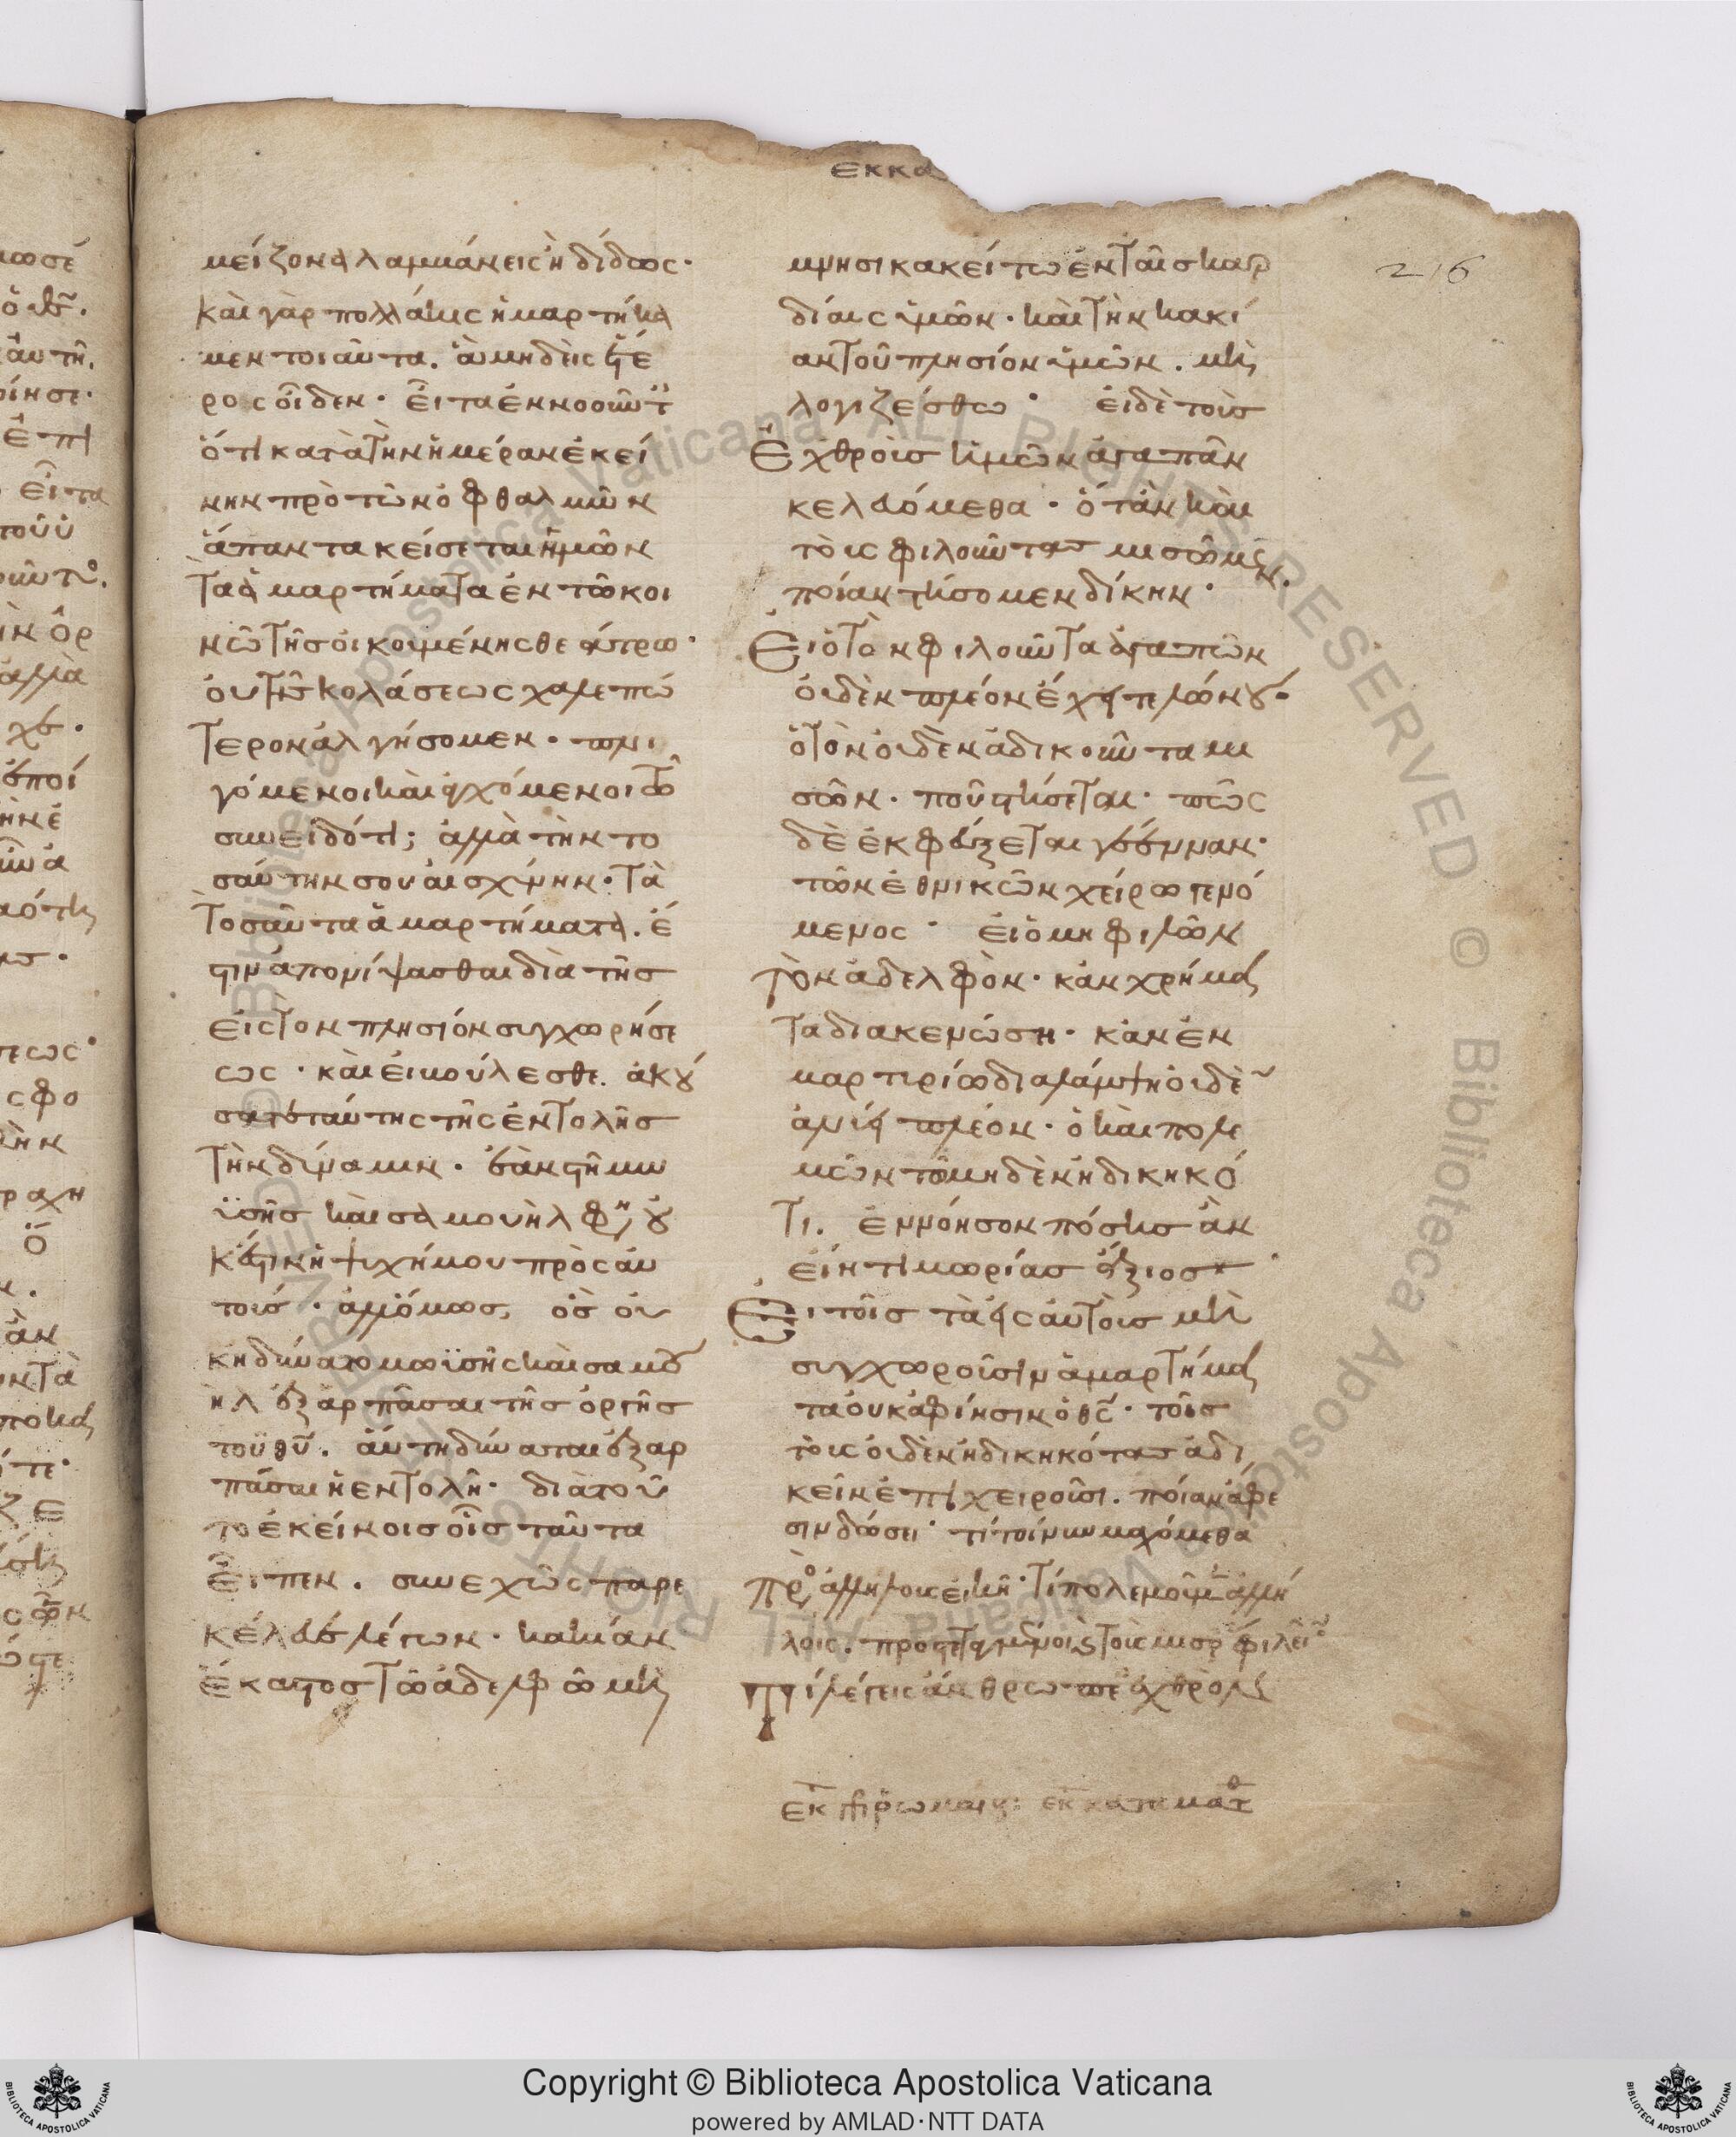 εκκλ
μείζονα λαμβάνεις ἢ δίδως·
καὶ γὰρ πολλάκις ἡμαρτήκα
μεν τοιαῦτα. ἃ μηδεὶς ἕτε
ρος οἶδεν· εἶτα ἐννοοῦντ
ὅτι κατὰ τὴν ἡμέραν ἐκεί
νην πρὸ τῶν ὀφθαλμῶν
ἅπαντα κείσεται ἡμῶν
τὰ ἁμαρτήματα ἐν τῶ κοι
νῶ τῆς οἰκουμένης θεάτρω·
οὐ τῆς κολάσεως χαλεπώ
τερον ἀλγήσομεν· πνι
γόμενοι καὶ ἀγχόμενοι τῶ
συνειδότι; ἀλλὰ τὴν το
σαύτην σου αἰσχύνην· τὰ
τοσαῦτα ἁμαρτήματα. ἔ
στιν ἀπονίψασθαι διὰ τῆς
εἰς τὸν πλησίον συγχωρήσε
ως· καὶ εἰ βούλεσθε ἀκού
σατε ταύτης τῆς ἐντολῆς
τὴν δύναμιν. ἐὰν στῆ μω
ϋσῆς καὶ σαμουὴλ φη, οὐ
κ ἔστιν ἡ ψυχή μου πρὸς αὐ
τούς· ἀλλ ὅμως, οὓς οὐ
κ ἠδύνατο μωϋσῆς καὶ σαμου
ὴλ ἐξαρπάσαι τῆς ὀργῆς
τοῦ θῦ. αὕτη δύναται ἐξαρ
πάσαι ἡ ἐντολή· διὰ τοῦ
το ἐκείνοις οἷς ταῦτα
εἶπεν. συνεχῶς παρε
κελεύε λέγων· κακίαν
ἕκαστος τῶ ἀδελφῶ μὴ
μνησικακείτω ἐν ταῖς καρ
δίαις ὑμῶν· καὶ τὴν κακί
αν τοῦ πλησίον ὑμῶν. μὴ
λογιζέσθω· εἰ δὲ τοὺς
Ἐχθροὺς ἡμῶν ἀγαπᾶν
κελευόμεθα· ὅταν καὶ
τοὺς φιλοῦντας μισῶμεν.
ποίαν τίσομεν δίκην·
Εἰ ὁ τὸν φιλοῦντα ἀγαπῶν
οὐδὲν πλέον ἔχει τελώνου·
ὁ τὸν οὐδὲν ἀδικοῦντα μι
σῶν. ποῦ στήσεται· πῶς
δὲ ἐκφεύξεται γέενναν·
τῶν ἐθνικῶν χείρω γενό
μενος· εἰ ὁ μὴ φιλῶν
τὸν ἀδελφὸν· κἂν χρήμα
τα διακενώση· κἂν ἐν
μαρτυρίω διαλάμψη οὐδὲ
ἀνύει πλέον· ὁ καὶ πολε
μῶν τῶ μηδὲν ἠδικηκό
τι. ἐννόησον πόσης ἂν
εἴη τιμωρίας ἄξιος
Εἰ τοῖς τὰ εἰς αὐτοὺς μὴ
συγχωροῦσιν ἁμαρτήμα
τα οὐκ ἀφίησιν ὁ θς· τοῖς
τοὺς οὐδὲν ἠδικηκότας ἀδι
κεῖν ἐπιχειροῦσι. ποίαν ἄφε
σιν δώσει· τί τοίνυν μαχόμεθα
πρὸ ἀλλήλους εἰκῆ· τί πολεμοῦμεν ἀλλή
λοις. προστεταγμένοις τοὺς μισ φιλεῖν
Τί λέγεις ἄνθρωπε ἐχθρὸν
216